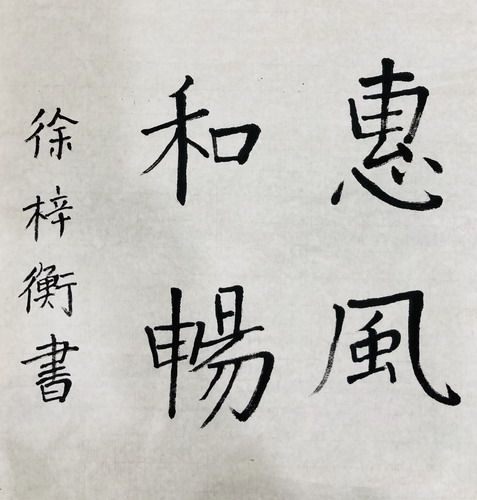 惠風
和暢
徐梓衡書